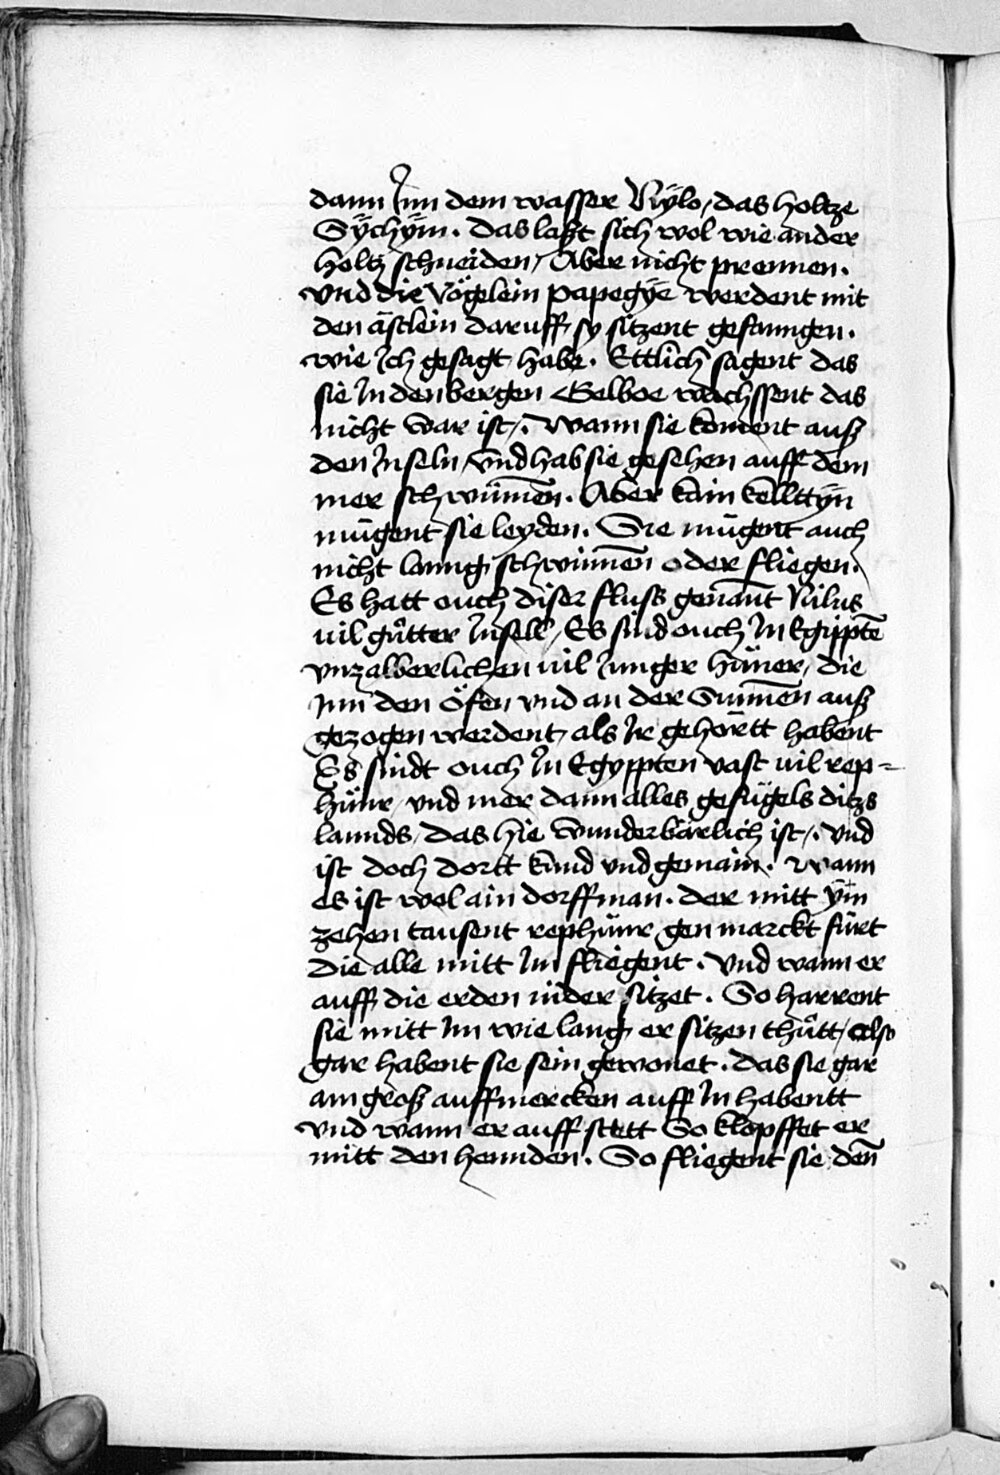 dann Jnn dem wasser Nÿlo, das holtze
Sÿchÿm. das laßt sich wol wie ander
holtz schneiden, Aber nicht prennen.
vnd die Vögelein papegÿe werdent mit
den ästlein daruff sy sitzent gefanngen.
wie Jch gesagt habe. Ettlich sagent das
sie Jn den bergen Gelboe wachssent das
nicht war ist,. wann sie koment auß
den Jnseln, vnd hab sie gesehen auff dem
mer schwümēn. Aber kain kelltÿn
mügent sie leyden. Sie mügent auch
nicht lanng schwimēn oder fliegen.
Es hatt ouch diser fluss genañt Nilus
vil gůtter Jnsell, Es sind ouch Jn Egipptē
vnzalberlichen vil Junger hüner, die
Jnn den öfen vnd an der Sunnēn auß
gezogen werdent, als Jr gehörtt habent
Es sindt ouch Jn Egyppten vast vil rep=
hüner, vnd mer dann alles gefügels ditzs
lannds, das hie wunderbärlich ist,. vnd
ist doch dortt kund vnd gemain. Wann
es ist wol ain dorffman. der mitt ÿm
zehen tausent rephüner gen marckt fürt
die alle mitt Jm fliegent. vnd wann er
auff die erden nider sitzet. So harrent
sie mitt Jm wie lang er sitzen thůtt, also
gar habent sie sein gewonet. das sie gar
ain groß auffmercken auff Jn habentt
vnd wann er auff stett So klopffet er
mitt den hennden. So fliegent sie deñ